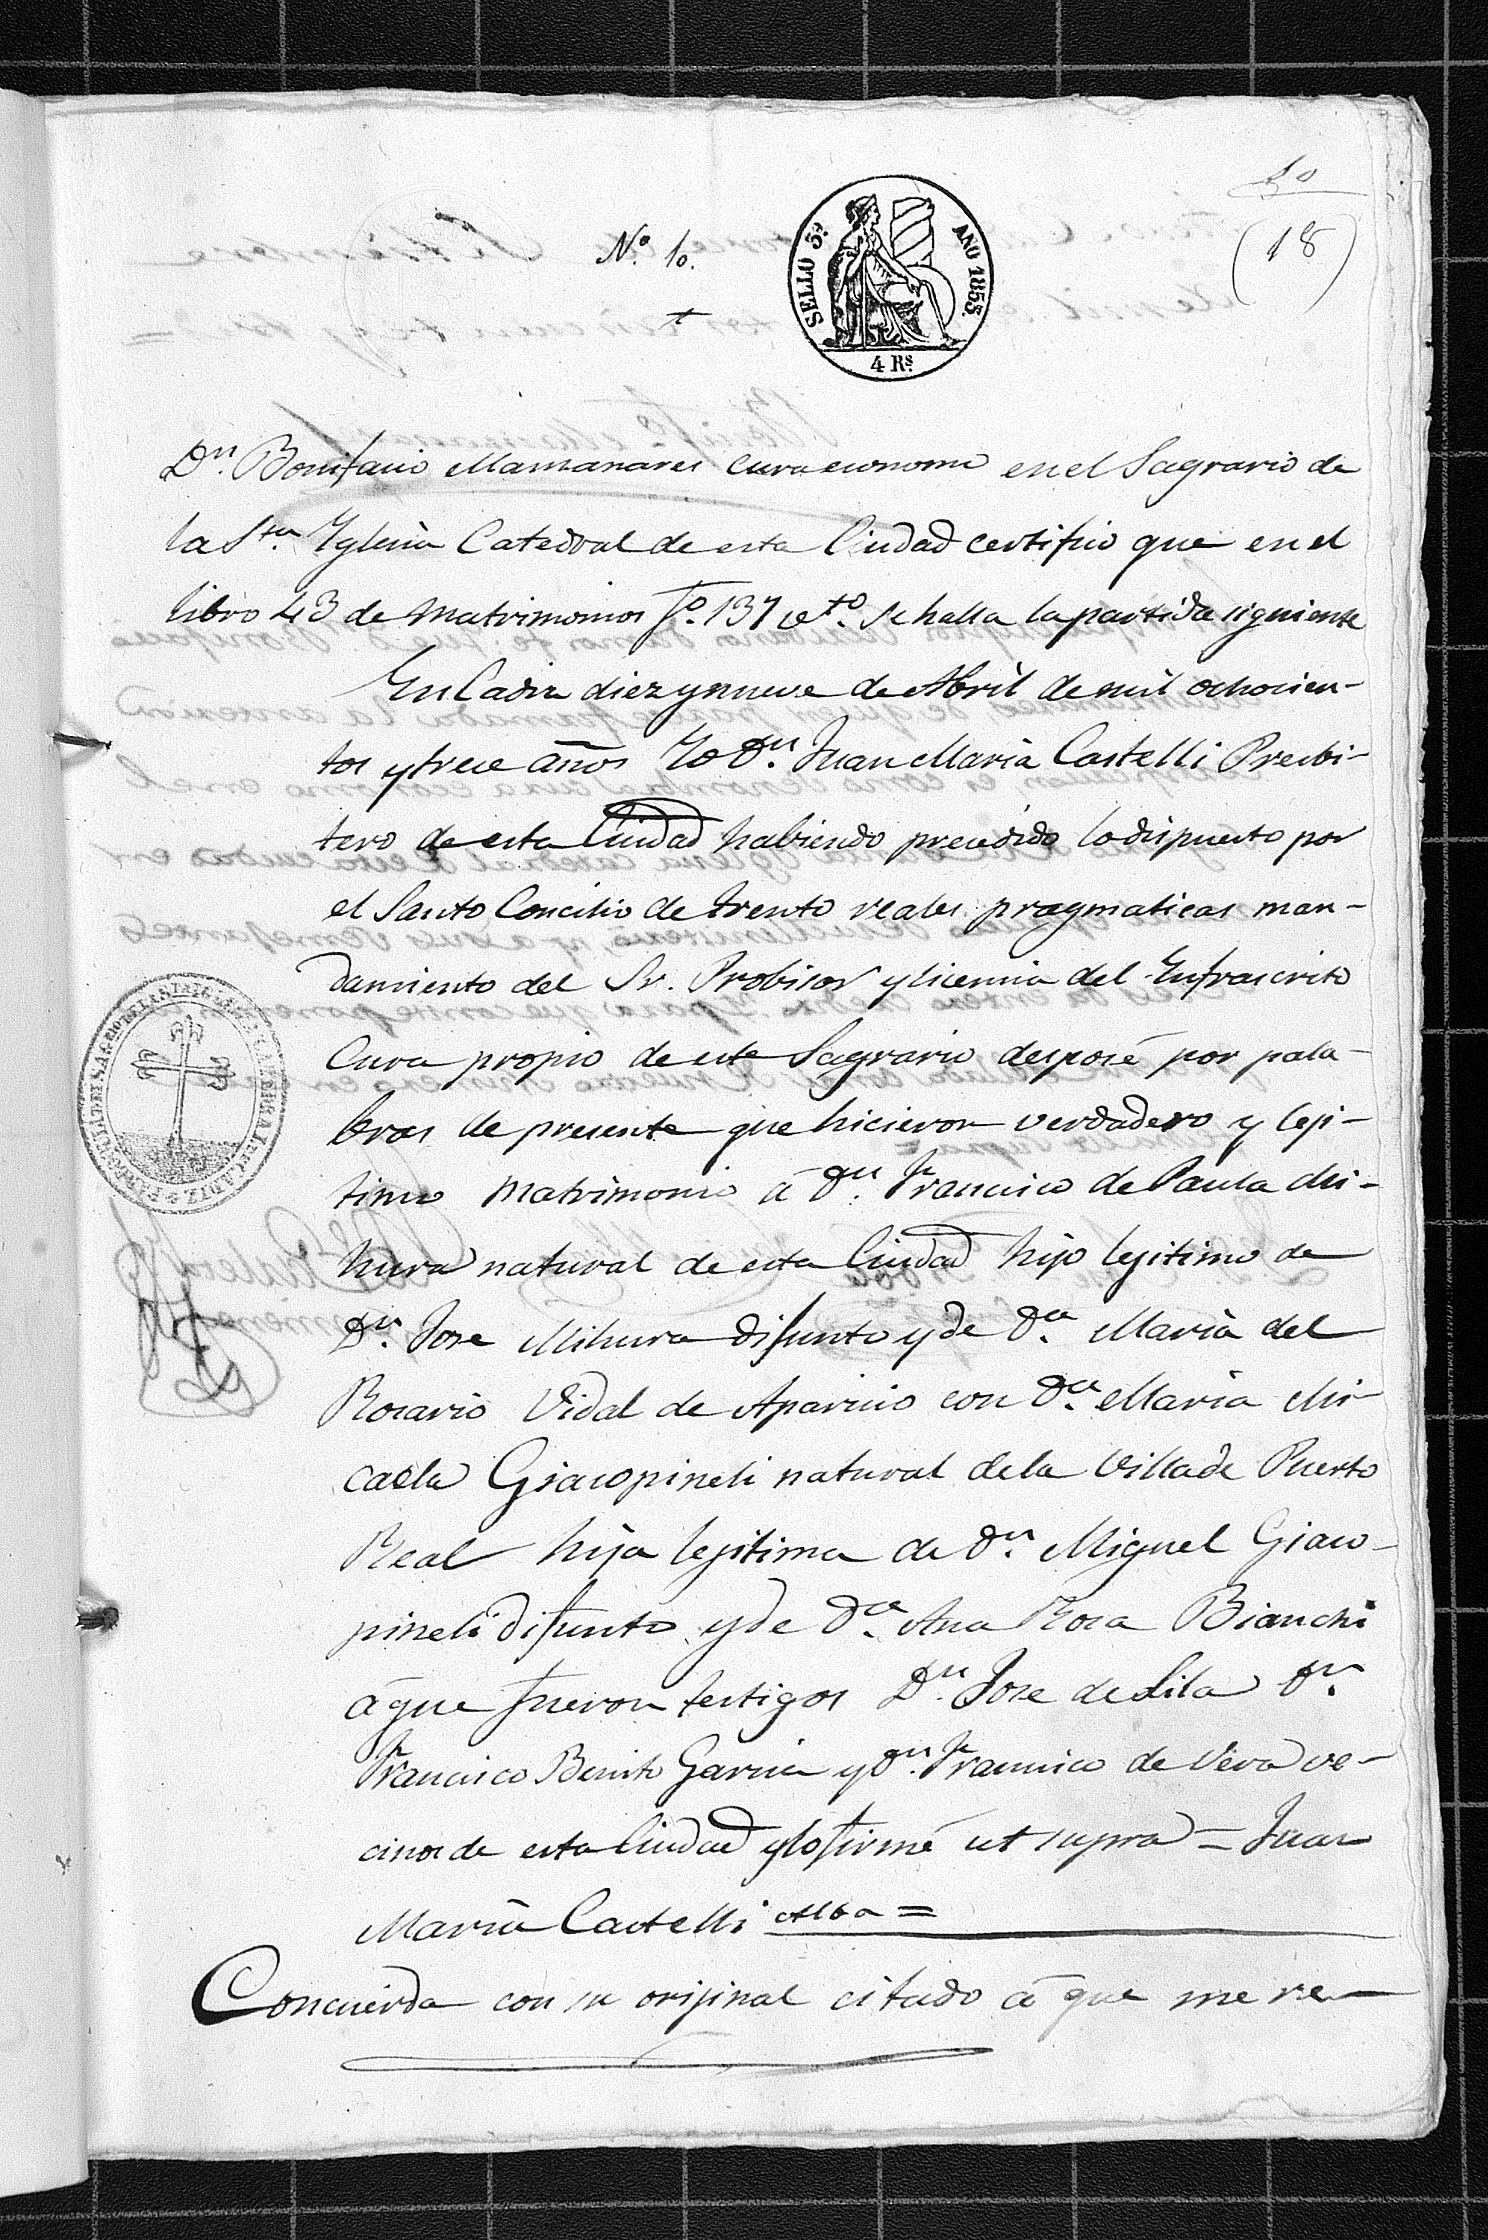 10
(18)
Nº 10.
SELLO 3º AÑO 1853.
4 Rs.
Dn. Bonifacio Manzanares cura economo en el Sagrario de
la Sta. Yglesia Catedral de esta Ciudad certifico que en el
libro 43 de Matrimonios fo. 137 vto. se halla la partida siguiente
En Cadiz diez y nueve de Abril de mil ochocien-
tos y trece años Yo Dn. Juan Maria Castelli Presbi-
tero de esta Ciudad habiendo precedido lo dispuesto por
el Santo Concilio de trento reales pragmaticas man-
damiento del Sr. Probisor y licencia del Infrascrito
Cura propio de este Sagrario desposé por pala-
bras de presente que hicieron verdadero y leji-
timo Matrimonio á Dn. Francisco de Paula Mi-
hura natural de esta Ciudad hijo legitimo de
Dn. Jose Mihura difunto y de Da. Maria del
Rosario Vidal de Aparicio con Da. Maria Mi-
caela Giacopineli natural de la Villa de Puerto
Real hija lejitima de Dn. Miguel Giaco-
pineli difunto y de Da. Ana Rosa Bianchi
á que fueron testigos Dn. Jose de Lila Dn.
Francisco Benito Garcia y Dn. Francisco de Vera ve-
cinos de esta Ciudad y lo firmé ut supra = Juan
Maria Castelli Alba =
Concuerda con su orijinal citado á que me re-